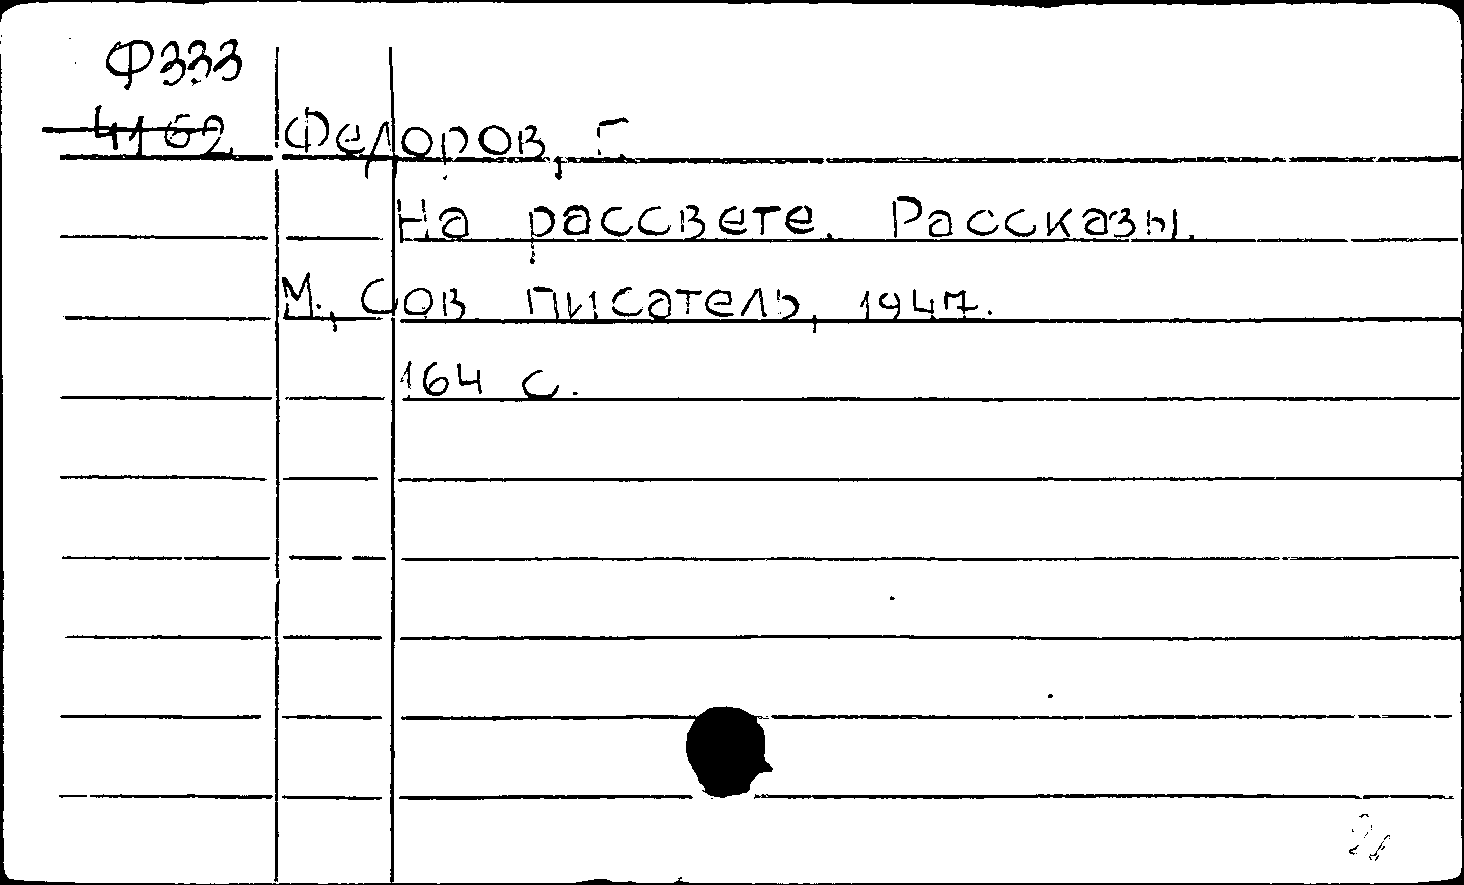 Ф333
4162 Федоров, Г.
На рассвете. Рассказы.
М., Сов. писатель, 1947.
164 с.